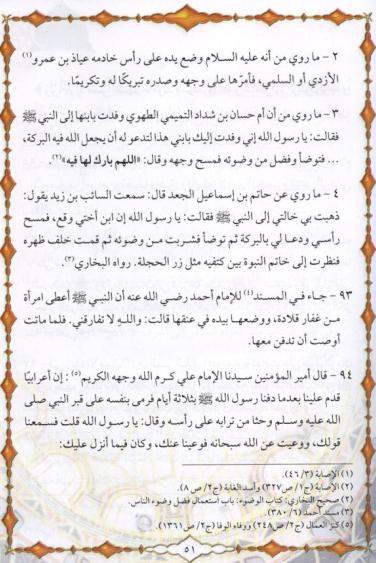 ٢ - ما روي من أنه عليه السلام وضع يده على رأس خادمه عياذ بن عمرو(١)
الأزدي أو السلمي، فأمرّها على وجهه وصدره تبريكًا له وتكريمًا.
٣ - ما روي من أن أم حسان بن شداد التميمي الطهوي وفدت بابنها إلى النبي ﷺ
فقالت: يا رسول الله إني وفدت إليك بابني هذا لتدعو له أن يجعل الله فيه البركة،
... فتوضأ وفضل من وضوئه فمسح وجهه وقال: «اللهم بارك لها فيه»(٢).
٤ - ما روي عن حاتم بن إسماعيل الجعد قال: سمعت السائب بن زيد يقول:
ذهبت بي خالتي إلى النبي ﷺ فقالت: يا رسول الله إن ابن أختي وقع، فمسح
رأسي ودعا لي بالبركة ثم توضأ فشربت من وضوئه ثم قمت خلف ظهره
فنظرت إلى خاتم النبوة بين كتفيه مثل زر الحجلة. رواه البخاري(٣).
٩٣ - جاء في المسند(٤) للإمام أحمد رضي الله عنه أن النبي ﷺ أعطى امرأة
من غفار قلادة، ووضعها بيده في عنقها قالت: والله لا تفارقني. فلما ماتت
أوصت أن تدفن معها.
٩٤ - قال أمير المؤمنين سيدنا الإمام علي كرم الله وجهه الكريم(٥): إن أعرابيًا
قدم علينا بعدما دفنا رسول الله ﷺ بثلاثة أيام فرمى بنفسه على قبر النبي صلى
الله عليه وسلم وحثا من ترابه على رأسه وقال: يا رسول الله قلت فسمعنا
قولك، ووعيت عن الله سبحانه فوعينا عنك، وكان فيما أنزل عليك:
(١) الإصابة (٣/ ٤٦).
(٢) الإصابة (ج١/ ص٣٢٧) وأسد الغابة (ج٢/ ص٨).
(٢) صحيح البخاري: كتاب الوضوء: باب استعمال فضل وضوء الناس.
(٣) مسند أحمد (٦/ ٣٨٠).
(٥) كنز العمال (ج٢/ ص٢٤٨) ووفاء الوفا (ج٢/ ص١٣٦١)
٥١